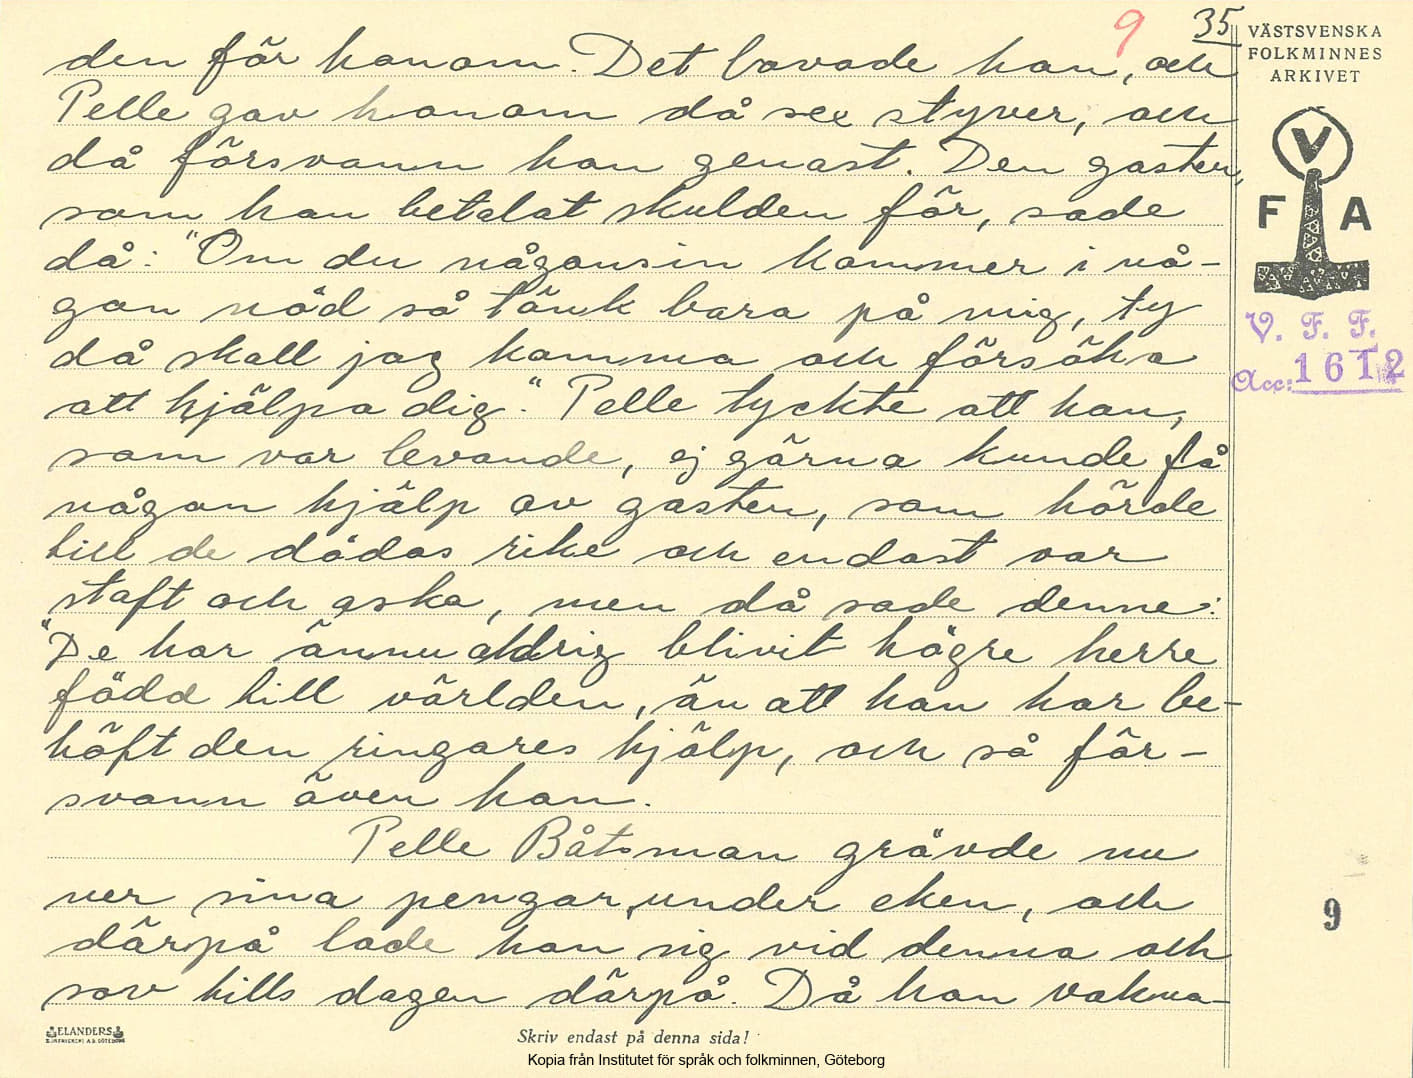 9 35
VÄSTSVENSKA
FOLKMINNES
ARKIVET
V
F A
V. F. F.
Acc: 1612
den för honom. Det lovade han, och
Pelle gav honom då sex styver, och
då försvann han genast. Den gasten,
som han betalat skulden för, sade
då: "Om du någonsin kommer i nå-
gon nöd så tänk bara på mig, ty
då skall jag komma och försöka
att hjälpa dig." Pelle tyckte att han,
som var levande, ej gärna kunde få
någon hjälp av gasten, som hörde
till de dödas rike och endast var
stoft och aska, men då sade denne:
"De har ännu aldrig blivit högre herre
född till världen, än att han har be-
höft den ringares hjälp, och så för-
svann även han.
Pelle Båtsman grävde nu
ner sina pengar under eken, och
därpå lade han sig vid denna och
sov tills dagen därpå. Då han vakna-
9
ELANDERS
Skriv endast på denna sida!
Kopia från Institutet för språk och folkminnen, Göteborg